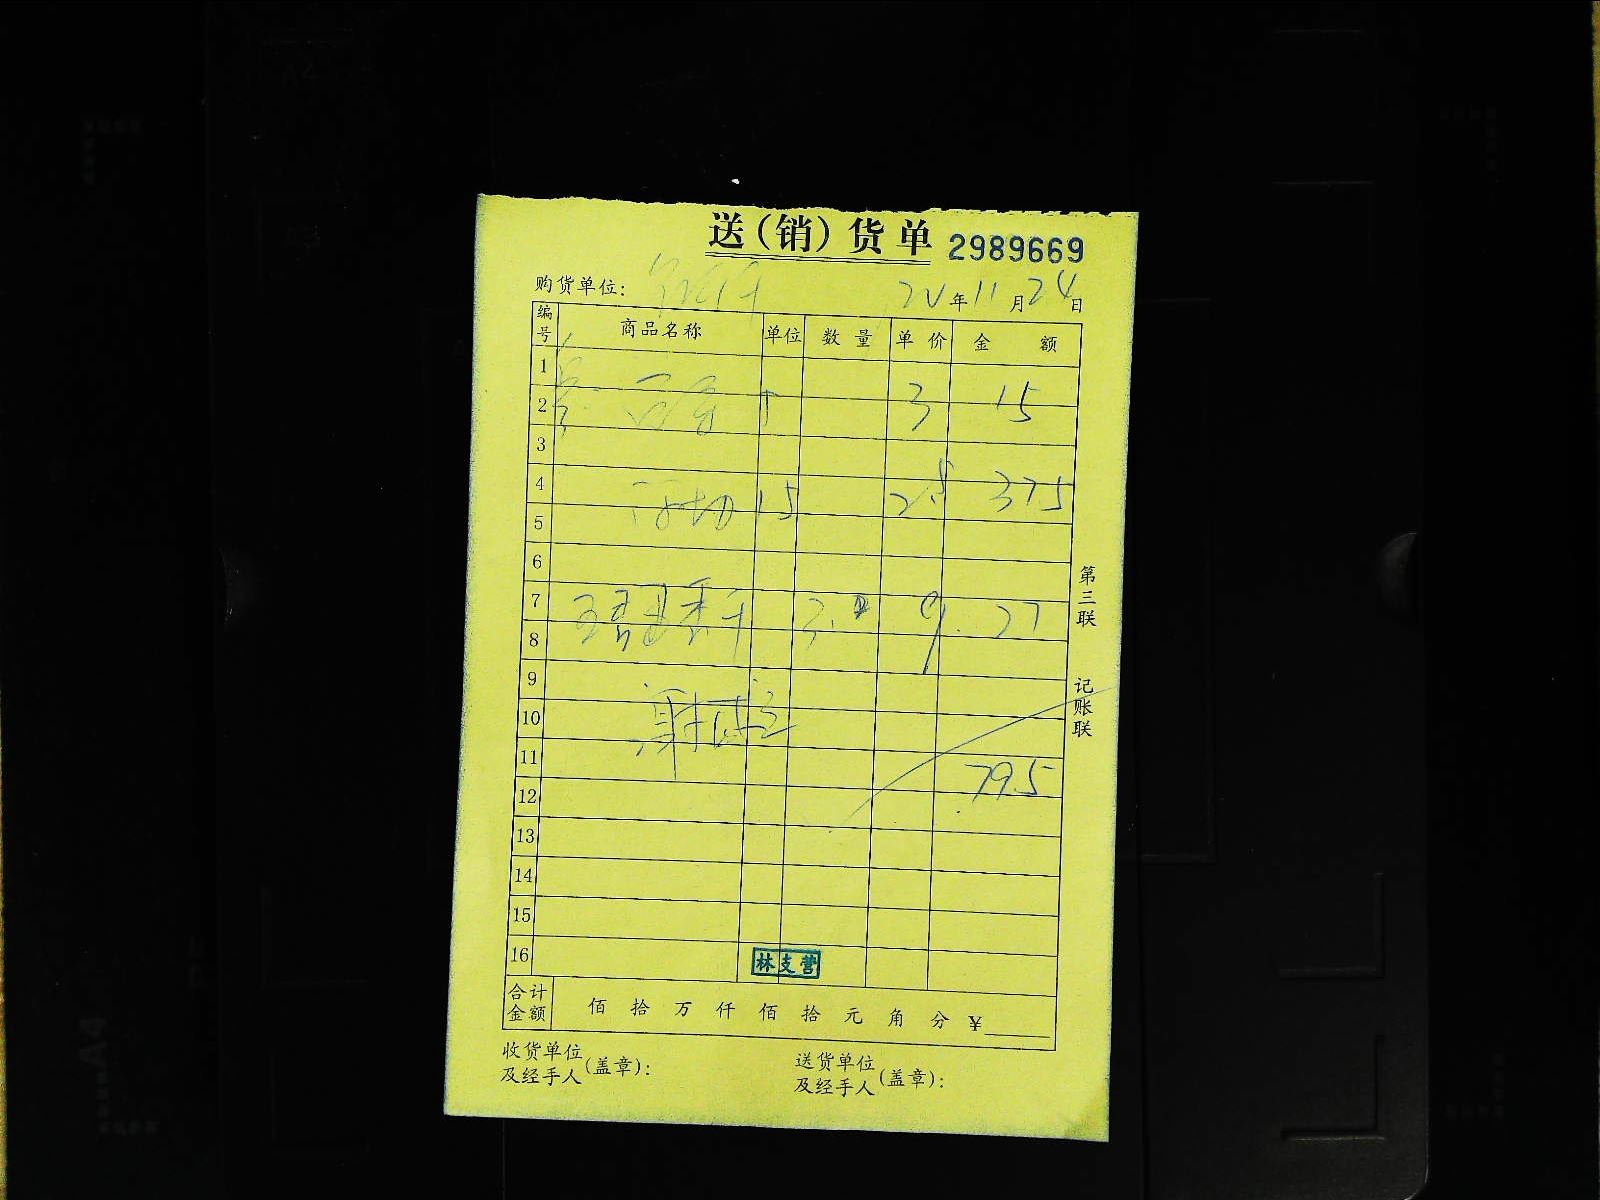 送(销)货单 2989669
购货单位: 20年11月24日
编号 商品名称 单位 数量 单价 金额
1
2 3 15
3
4 15 2.5 375
5
6
7 9. 27
8
9
10
11 79.5
12
13
14
15
16 林支营
合计金额 佰 拾 万 仟 佰 拾 元 角 分 ¥
收货单位及经手人(盖章):
送货单位及经手人(盖章):
第三联 记账联